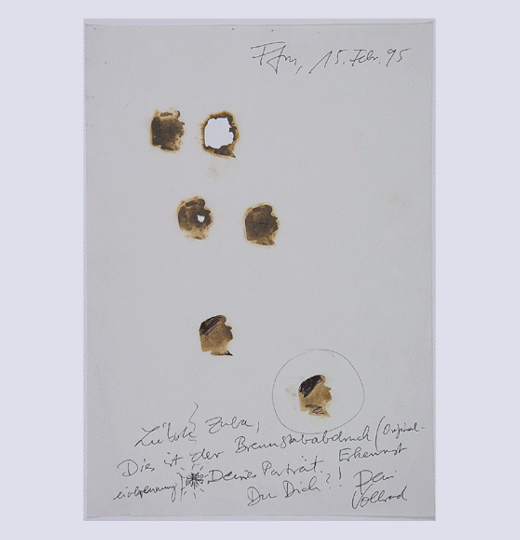 Ffm, 15. Febr. 95
Liebste Zuba,
Dies ist der Brennstababdruck (Original-
einbrennung) Deines Porträt. Erkennst
Du Dich?! Dein
Vollrad